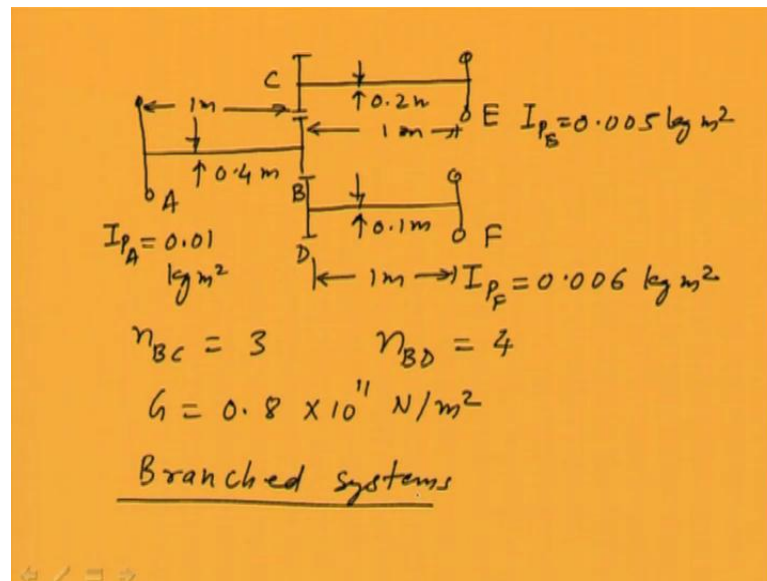 C
1m
↑0.2m
E I_{P_E}=0.005 kg m²
1m
↑0.4m
A
B
↑0.1m
F
I_{P_A}=0.01
kg m²
D
1m
I_{P_F}=0.006 kg m²
n_{BC} = 3 n_{BD} = 4
G = 0.8 × 10¹¹ N/m²
Branched systems